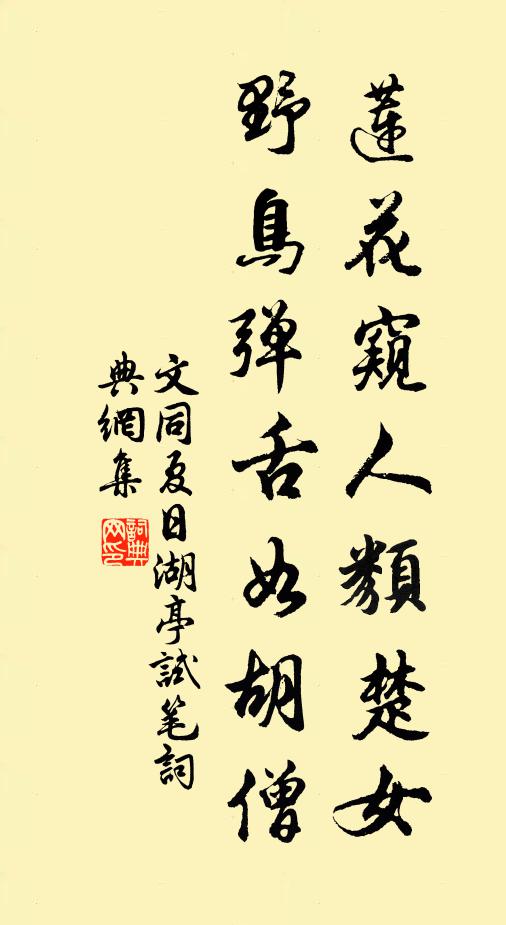 蓮花窺人類楚女
野鳥弹舌如胡僧
文同夏日湖亭試笔詞
典網集
詞典网印